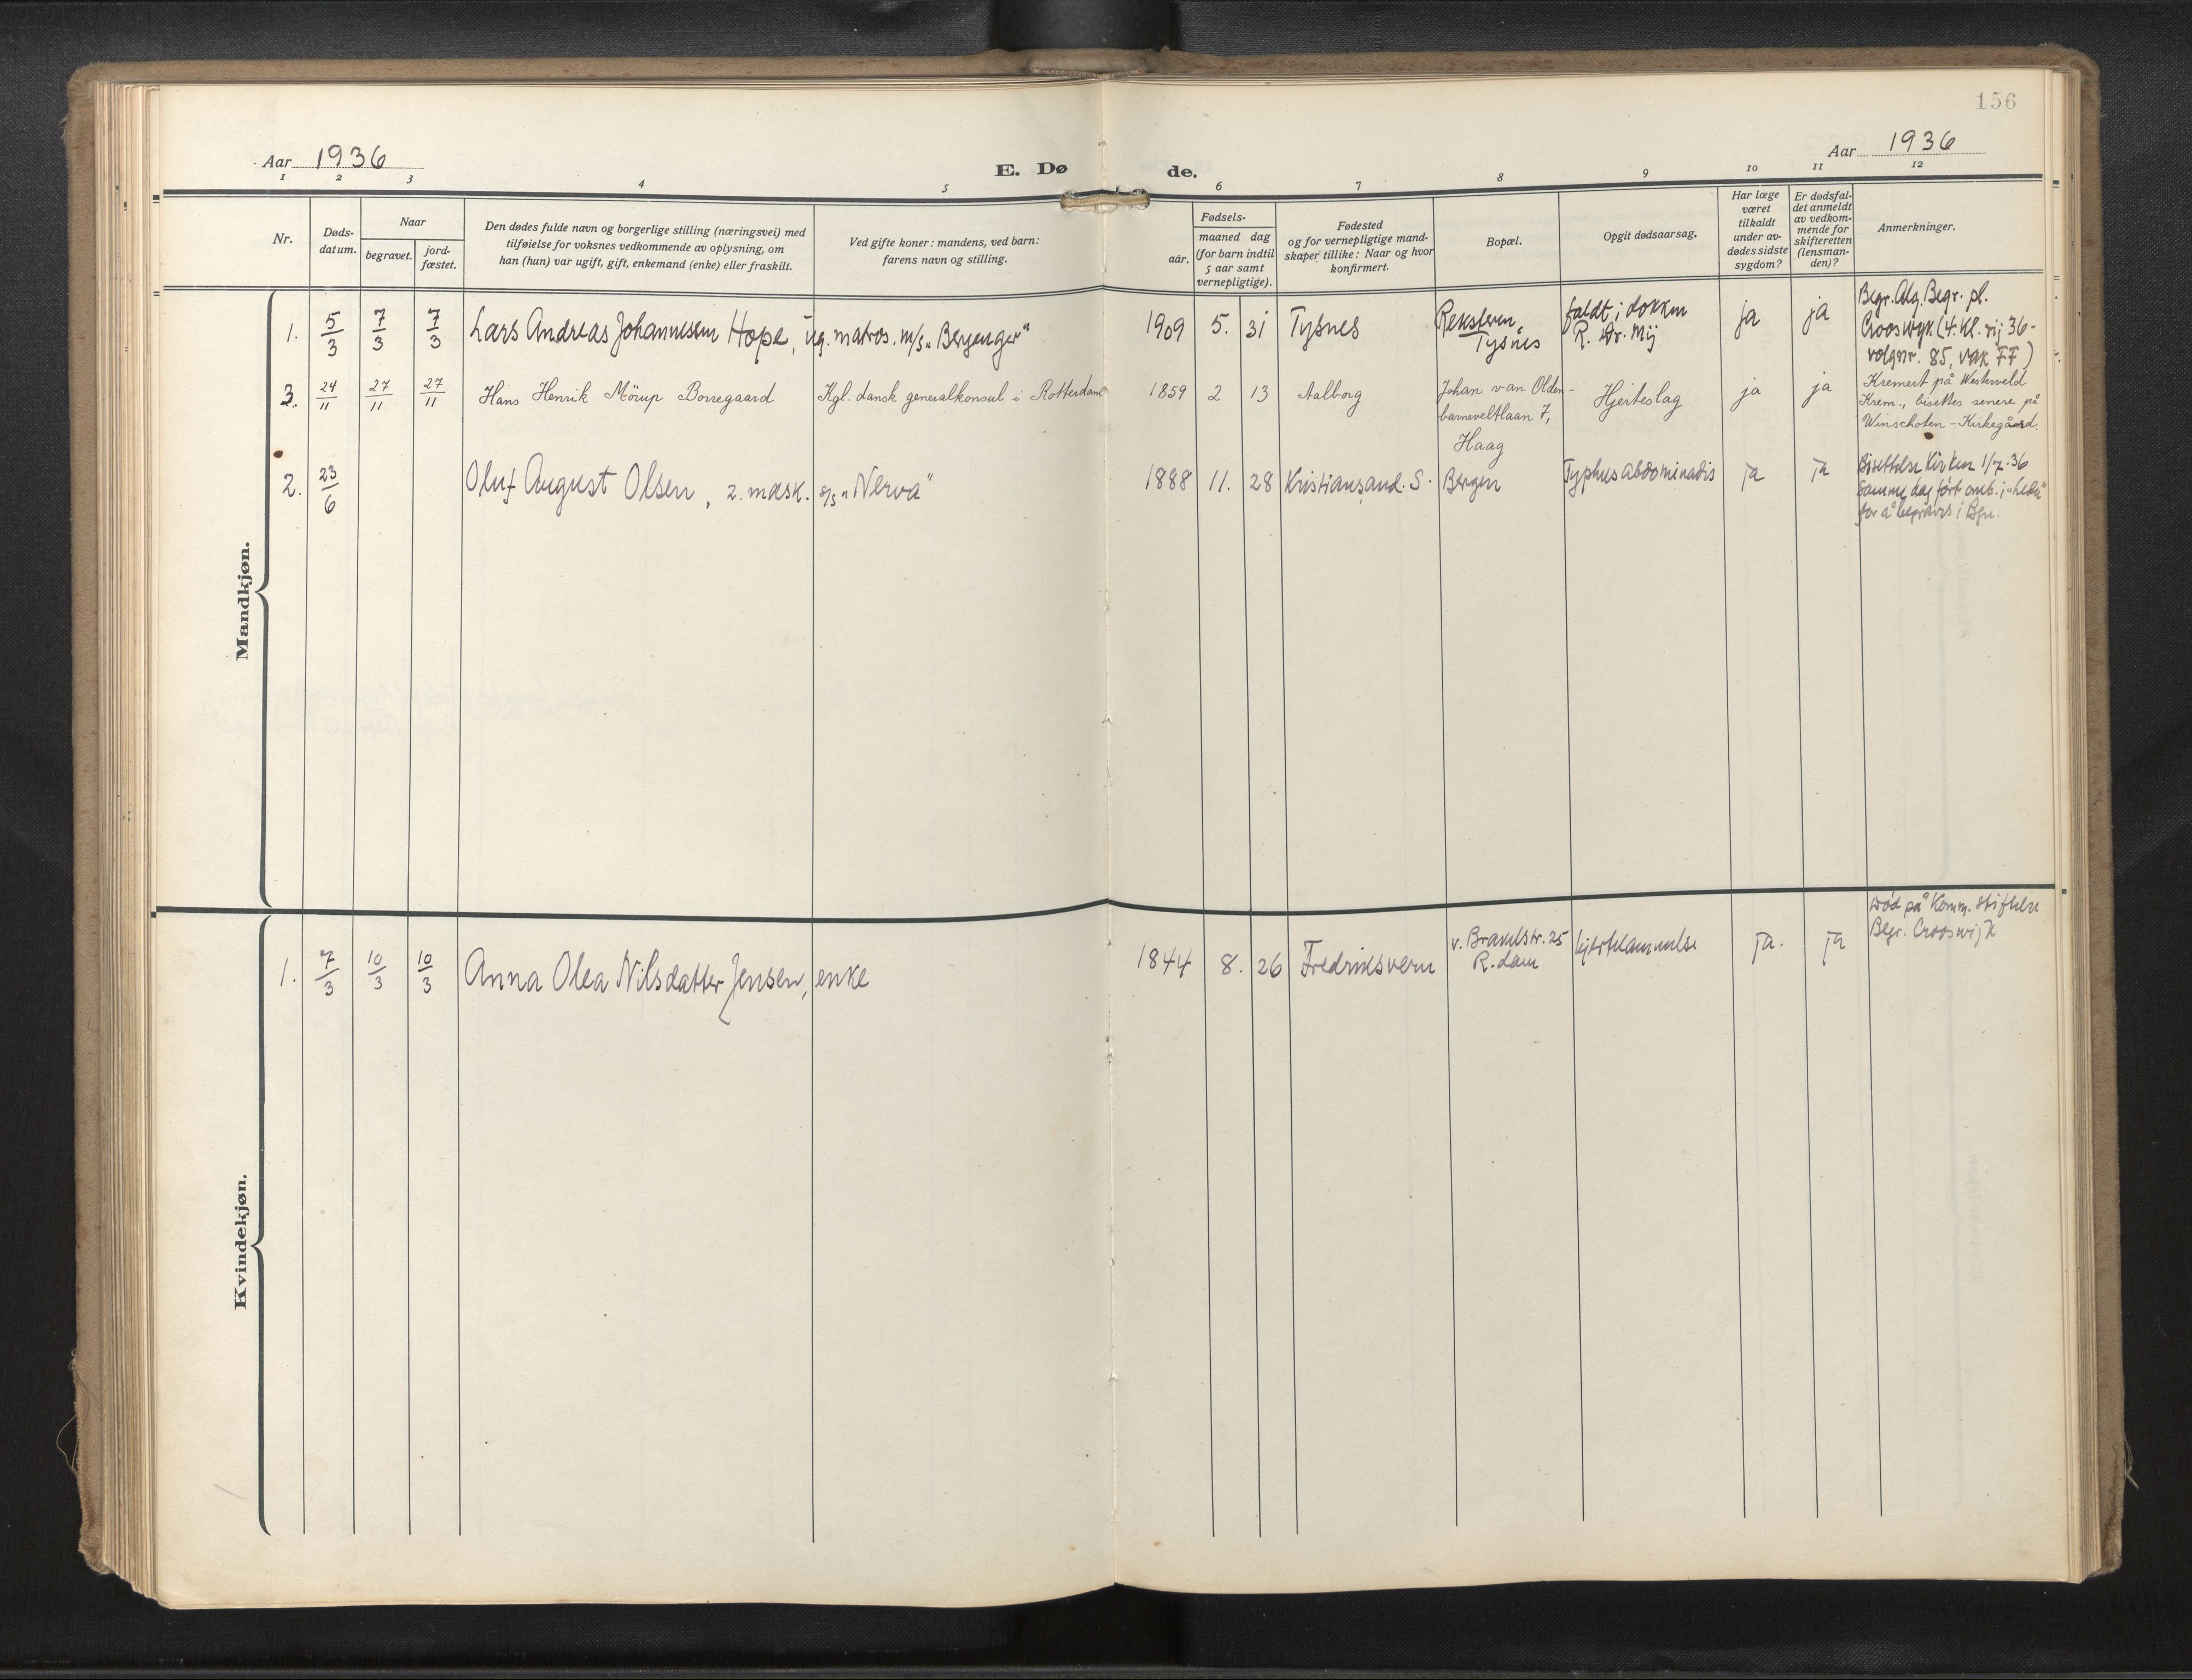 156
Aar 1936
E. Dø de.
Aar 1936
1 2 3 4 5 6 7 8 9 10 11 12
Nr.
Døds-
datum.
Naar
begravet.
jord-
fæstet.
Den dødes fulde navn og borgerlige stilling (næringsvei) med
tilføielse for voksnes vedkommende av oplysning, om
han (hun) var ugift, gift, enkemand (enke) eller fraskilt.
Ved gifte koner: mandens, ved barn:
farens navn og stilling.
Fødsels-
aar.
maaned dag
(for barn indtil
5 aar samt
vernepligtige).
Fødested
og for vernepligtige mand-
skaper tillike: Naar og hvor
konfirmert.
Bopæl.
Opgit dødsaarsag.
Har læge
været
tilkaldt
under av-
dødes sidste
sygdom?
Er dødsfal-
det anmeldt
av vedkom-
mende for
skifteretten
(lensman-
den)?
Anmerkninger.
Mandkjøn.
1. 5/3 7/3 7/3 Lars Andreas Johannesen Hope, ug. matros. m/s „Beranger" 1909 5. 31 Tysnes
Reksteren,
Tysnes
faldt i dokken
R. Dr. Mij
ja ja
Begr. Alg. Begr. pl.
Crooswyk (4. Kl. rij 36-
volgnr. 85, vak FF)
3. 24/11 27/11 27/11 Hans Henrik Mörup Borregaard Kgl. dansk generalkonsul i Rotterdam 1859 2 13 Aalborg
Johan van Olden-
barneveltlaan 7,
Haag
Hjerteslag ja ja
Kremert på Westerveld
Krem., bisettes senere på
Winschoten - Kirkegård.
2. 23/6 Oluf August Olsen, 2. mask. s/s „Nerva" 1888 11. 28 Kristiansand. S. Bergen Typhus abdominalis ja ja
Bisettelse Kirken 1/7-36
Samme dag ført omb. i
for å begraves i Bgn.
Kvindekjøn.
1. 7/3 10/3 10/3 Anna Olea Nilsdatter Jensen, enke 1844 8. 26 Fredriksvern
v. Brakelstr. 25
R.dam
hjertelammelse ja. ja
Død på Komm. Stiftelse
Begr. Crooswijk